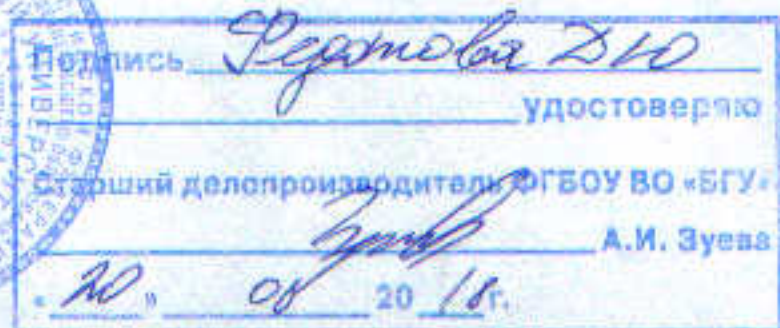 Подпись Федотова Д Ю
удостоверяю
Старший делопроизводитель ФГБОУ ВО «БГУ»
А.И. Зуева
« 20 » 08 20 18 г.
УНИВЕРСИТЕТ